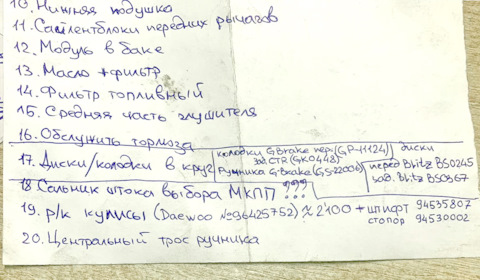 10. Нижняя подушка
11. Сайлентблоки передних рычагов
12. Модуль в баке
13. Масло + фильтр
14. Фильтр топливный
15. Средняя часть глушителя
16. Обслужить тормоза
17. Диски/колодки в круг
колодки G-Brake пер. (GP-11124)
зад. CTR (GK0448)
ручника G-Brake (GS-22006)
диски
перед Blitz BS0245
зад. Blitz BS0367
18 Сальник штока выбора МКПП ???
19. р/к кулисы (Daewoo №96425752) ≈ 2100 + штифт 94535807
стопор 94530002
20. Центральный трос ручника